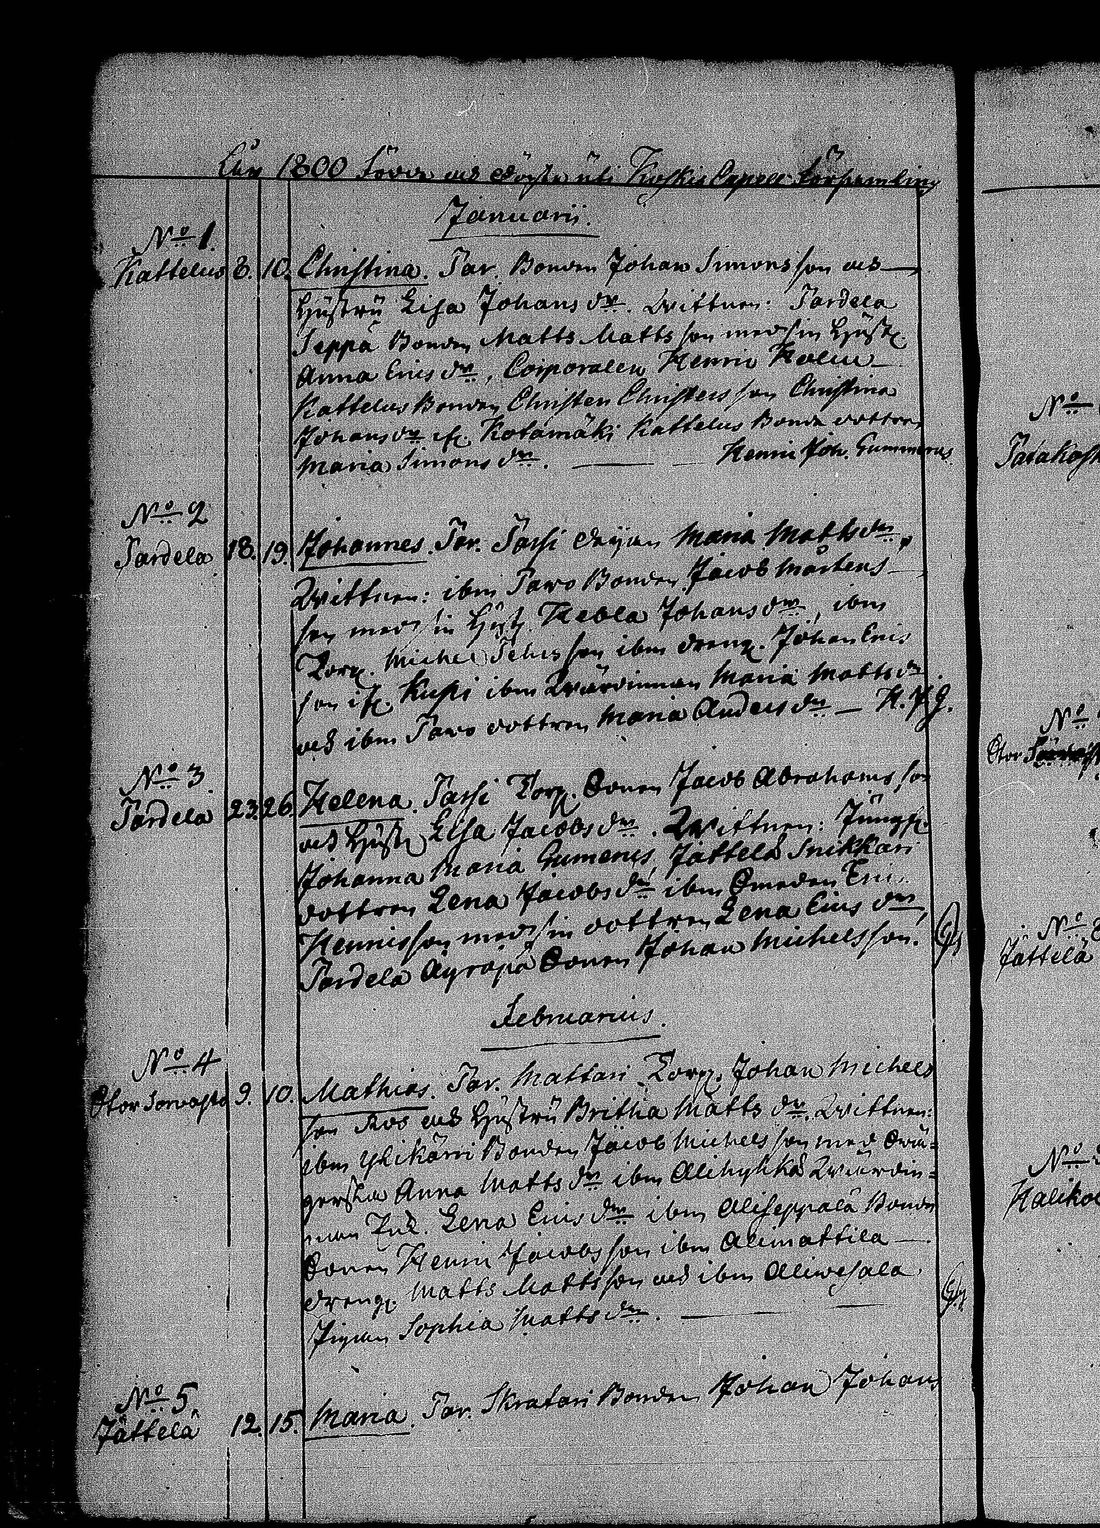 Åhr 1800 Födde och döpte uti Koskis Capell Församling
Januarii.
No 1.
Kattelus 8. 10. Christina. Par. Bonden Johan Simonsson och
Hustru Lisa Johans dr. Wittnen: Tardela
Seppä Bonden Matts Mattsson med sin Hust.
Anna Erics dr, Corporalen Henric Holm
Kattelus Bonden Christer Christersson Christina
Johans dr Kotamäki Kattelus Bonde dottren
Maria Simons dr. Henric Joh. Gummerus
No 2
Tardela 18. 19. Johannes. Par. Passi Maria Matts dr,
Wittnen: ibm Paavo Bonden Jacob Mårtens
son med sin Hust. Hebla Johans dr, ibm
Torp. Michel son ibm dreng. Johan Erics
son ibm Wärdinnan Maria Matts dr
och ibm dottren Maria Anders dr H. J. G.
No 3.
Tardela 23. 26. Helena. Passi Torp. Sonen Jacob Abrahams son
och Hust. Lisa Jacobs dr. Wittnen: Jungfr.
Johanna Maria Gumerus, Jättelä Snikkari
dottren Lena Jacobs dr ibm Smeden Eric
Henricsson med sin dottren Lena Erics dr,
Tardela Äyräpä Sonen Johan Michelsson.
Februarius.
No 4
Stor Sorvasto 9. 10. Mathias. Par. Mattari Torp. Johan Michels
son Ros och Hustru Britha Matts dr. Wittnen:
ibm Ylikärri Bonden Jacob Michelsson med Swä=
gerskan Anna Matts dr ibm Alihyhkä Wärdin=
nan Enk. Lena Erics dr ibm Aliseppälä Bonde
Sonen Henric Jacobsson ibm Alimattila
dreng. Matts Mattsson och ibm Aliwesala
Pigan Sophia Matts dr.
No 5.
Jättelä 12. 15. Maria. Par. Skratari Bonden Johan Johans
Parakosk
Stor
No 8
Jättelä
Haliko